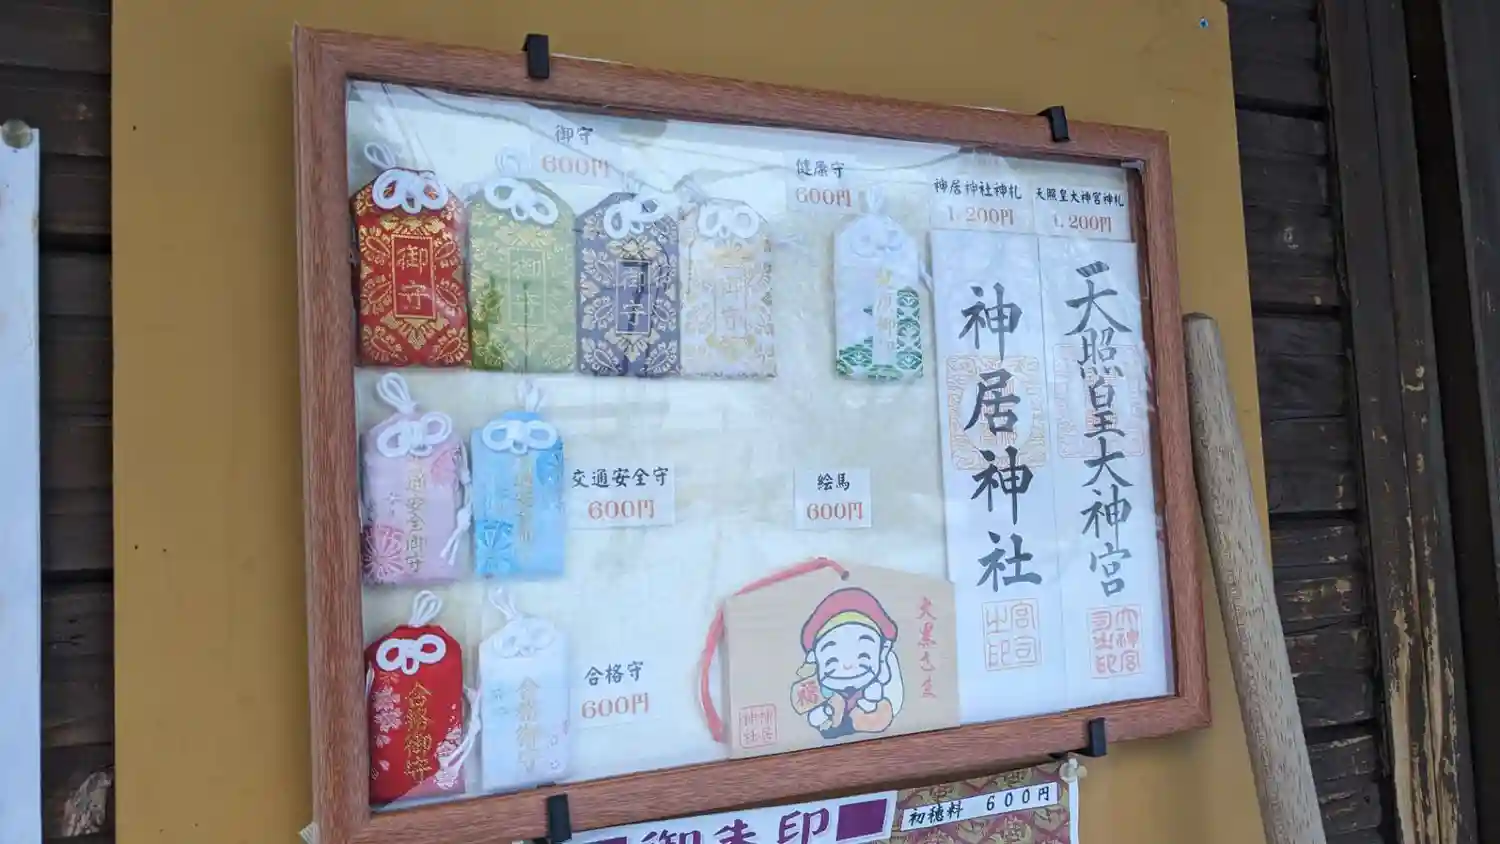 御守
600円
健康守
600円
神居神社神札
1,200円
天照皇大神宮神札
1,200円
御守
御守
御守
御守
神居神社
天照皇大神宮
交通安全守
600円
絵馬
600円
交通安全御守
合格守
600円
合格御守
合格御守
大黒さま
福
神居
神社
宮司
之印
大神宮
司之印
御朱印
初穂料 600円